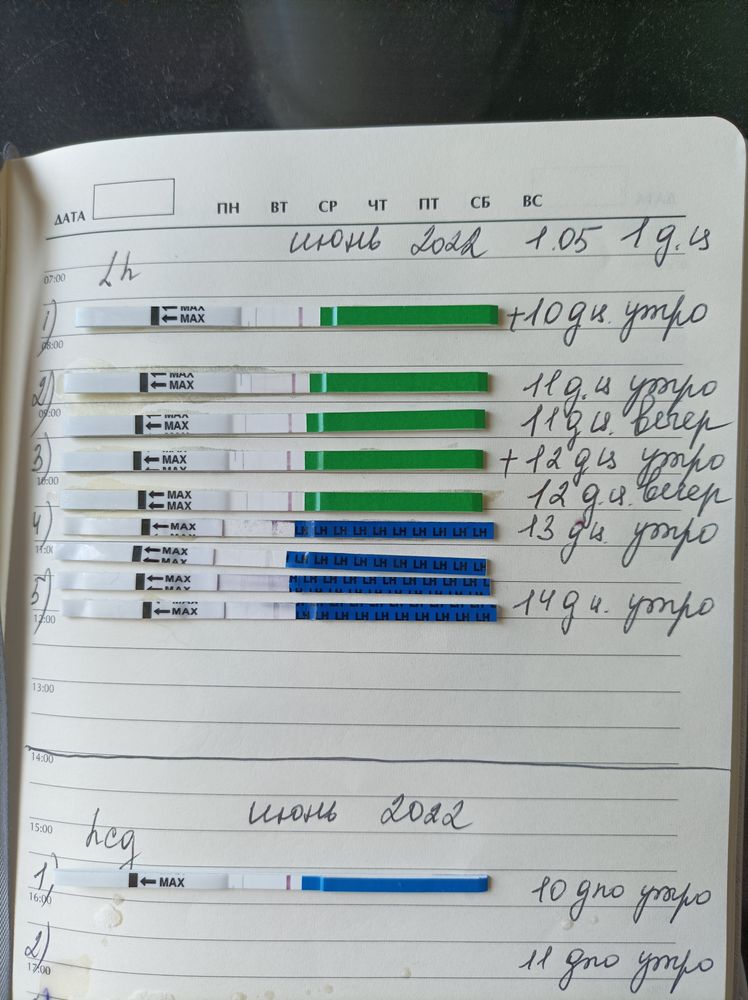 ДАТА ПН ВТ СР ЧТ ПТ СБ ВС
июнь 2022 1.05 1 д.ц
07:00 Lh
1) MAX MAX +10 дц. утро
08:00
2) MAX MAX 11 д.ц утро
09:00 MAX 11 дц. вечер
3) MAX MAX +12 дц утро
10:00 MAX MAX 12 д.ц. вечер
4) MAX LH LH LH LH LH LH LH LH LH LH 13 дц. утро
11:00 MAX LH LH LH LH LH LH LH LH LH
5) MAX LH LH LH LH LH LH LH LH LH LH
12:00 MAX MAX LH LH LH LH LH LH LH LH LH LH 14 дц. утро
13:00
14:00
июнь 2022
15:00
hcg
1) MAX 10 дпо утро
16:00
2) 11 дпо утро
17:00